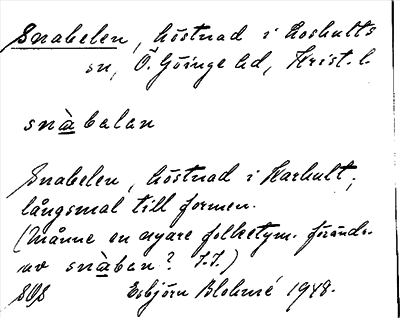 Snabelen, höstnad i Loshults
sn, Ö. Göinge hd, Krist. l.
snàbalan
Snabelen, höstnad i Harhult;
långsmal till formen.
(Månne en nyare folketym. föränd.
av snàban? I.I.)
SOJ Esbjörn Blohmé 1948.